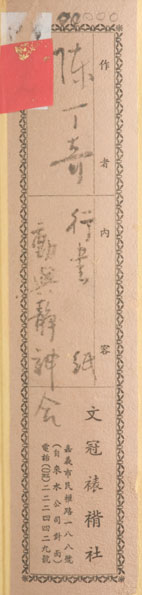 作者
陳丁奇
內容
行書 紙
動與靜神会
文冠裱褙社
嘉義市民權路一八八號
(自來水公司對面)
電話(05)二二二四四二九號